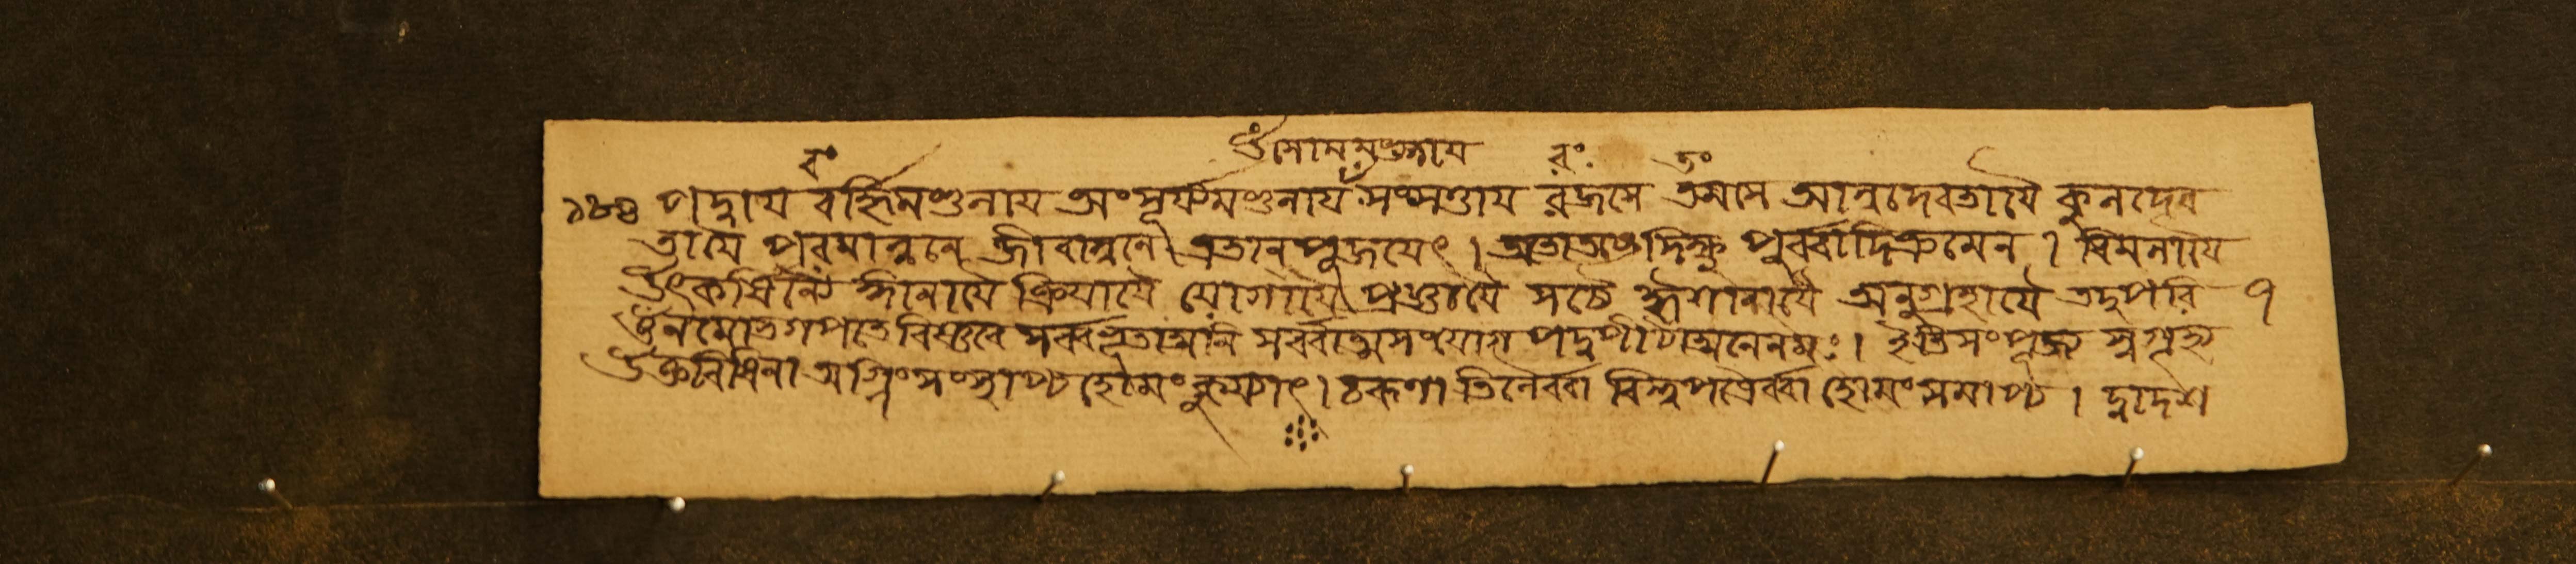 উঁ সোমমণ্ডলায়
বং রং তং
১৪৪ পদ্মায় বহ্নিমণ্ডলায় অং সূর্য্যমণ্ডলায় সং সত্ত্বায় রজসে তমসে আত্মদেবতায়ৈ কুলদেব
তায়ৈ পরমাত্মনে জীবাত্মনে এতান্ পূজয়েৎ। অতোঅষ্টদিক্ষু পূর্ব্বাদিক্রমেন। বিমলায়ৈ
উৎকর্ষিন্যৈ জ্ঞানায়ৈ ক্রিয়ায়ৈ যোগায়ৈ প্রহ্বায়ৈ সত্যৈ ঈশানায়ৈ অনুগ্রহায়ৈ তদুপরি ৭
ওঁ নমো ভগবতে বিষ্ণবে সর্ব্বভূতাত্মনে সর্ব্বাত্মসংযোগ পদ্মপীঠাত্মনে নমঃ। ইতি সংপূজ্য স্বগৃহ্য
উক্তবিধিনা অগ্নিং সংস্থাপ্য হোমং কুর্য্যাৎ। তিলৈর্ব্বা বিল্বপত্রৈর্ব্বা হোমং সমাপ্য। দ্বাদশ